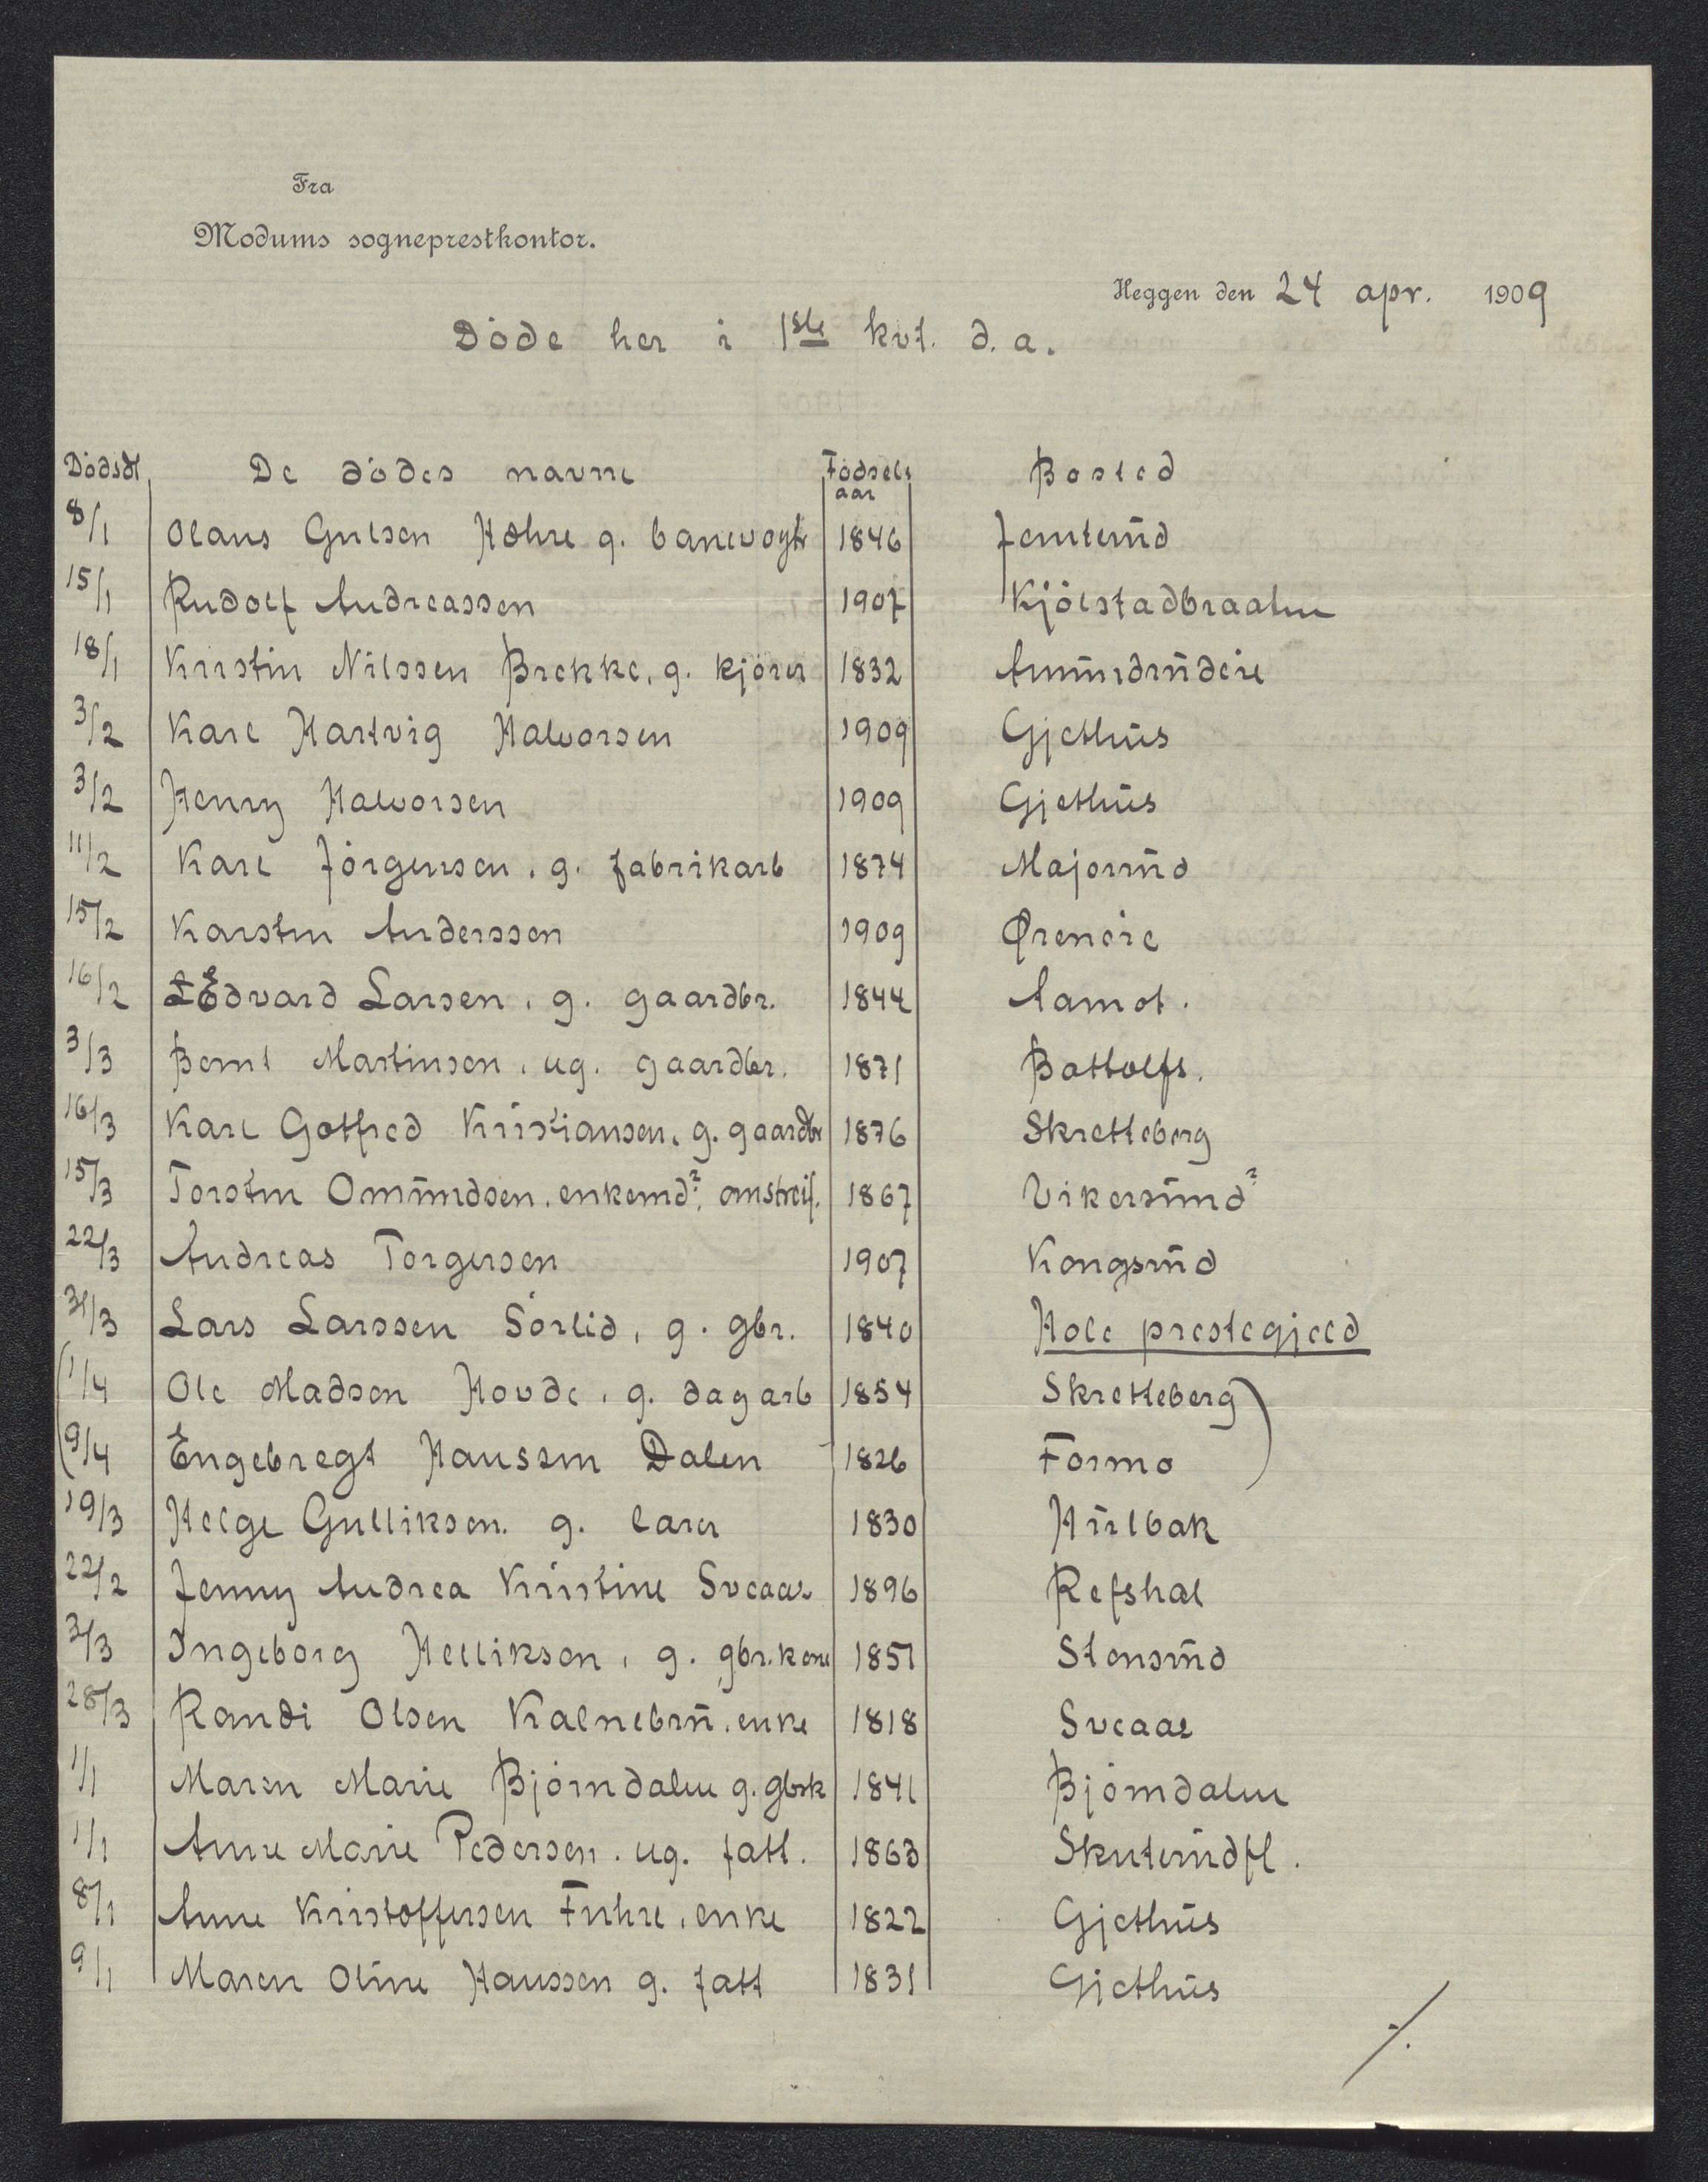 Fra
Modums sogneprestkontor.
Heggen den 24 apr. 1909
Døde her i 1ste kvt. d. a.
Dødsdt De dødes navne Fødsels aar Bosted
8/1 Olaus Gulsen Hæhre g. banevogter 1846 Jemterud
15/1 Rudolf Andreassen 1907 Kjølstadbraaten
18/1 Kristin Nilssen Brekke, g. kjører 1832 Amundrudeie
3/2 Karl Hartvig Halvorsen 1909 Gjethus
3/2 Henry Halvorsen 1909 Gjethus
11/2 Karl Jørgensen, g. fabrikarb 1874 Majorud
15/2 Karsten Anderssen 1909 Øreneie
16/2 Edvard Larsen, g. gaardbr. 1844 Aamot.
3/3 Bernt Martinsen, ug. gaardbr. 1871 Bottolfs.
16/3 Karl Gotfred Kristiansen, g. gaardbr 1876 Skretteberg
15/3 Torsten Omundsen, enkemd?, omstreif. 1867 Vikersund?
22/3 Andreas Torgersen 1907 Kongsrud
31/3 Lars Larssen Sørlid, g. gbr. 1840 Hole prestegjeld
(1/4 Ole Madsen Hovde, g. dagarb 1854 Skretteberg)
(9/4 Engebregt Hanssen Dalen 1826 Formo)
19/3 Helge Gulliksen. g. lærer 1830 Hulbak
22/2 Jenny Andrea Kristine Sveaas 1896 Refshal
3/3 Ingeborg Helliksen, g. gbr.kone 1851 Stensrud
28/3 Randi Olsen Kalnebru, enke 1818 Sveaas
1/1 Maren Marie Bjørndalen g. gbrk 1841 Bjørndalen
1/1 Anne Marie Pedersen. ug. fatt. 1863 Skuterudfl.
8/1 Anne Kristoffersen Fuhre, enke 1822 Gjethus
9/1 Maren Oline Hanssen g. fatt 1831 Gjethus
./.